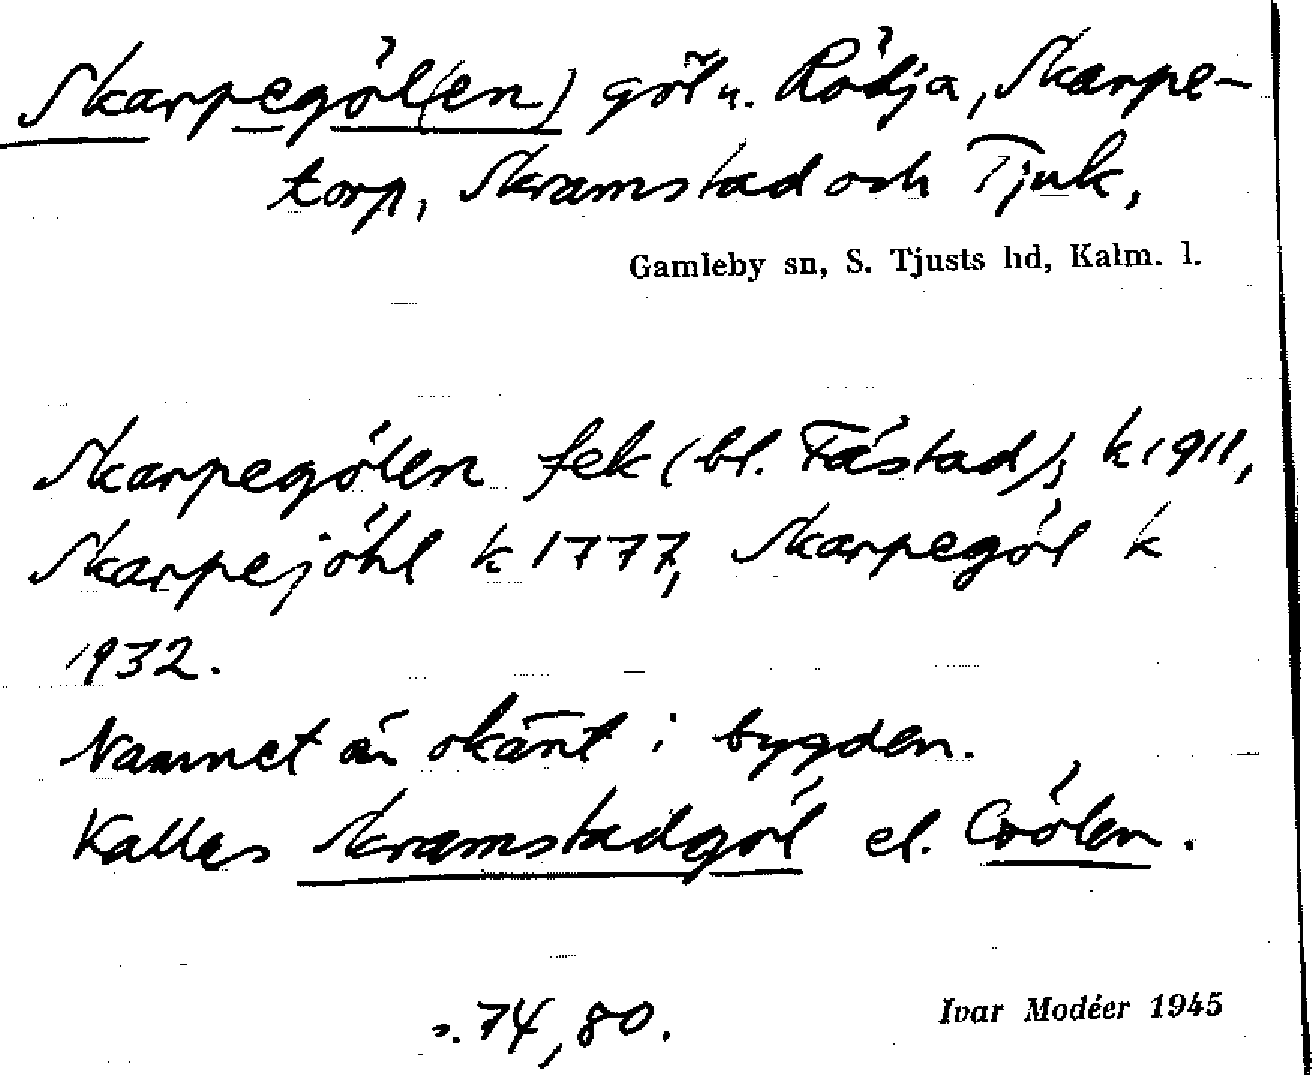 Skarpegöl(en) göl u. Rödja, Skarpe-
torp, Skramstad och Tjuk,
Gamleby sn, S. Tjusts hd, Kalm. l.
Skarpegölen fek (bl. Fästad), k 1911,
Skarpejöhl k 1777, Skarpegöl k
1932.
Namnet är okänt i bygden.
Kallas Skramstadgöl el. Gölen.
s. 74, 80.
Ivar Modéer 1945